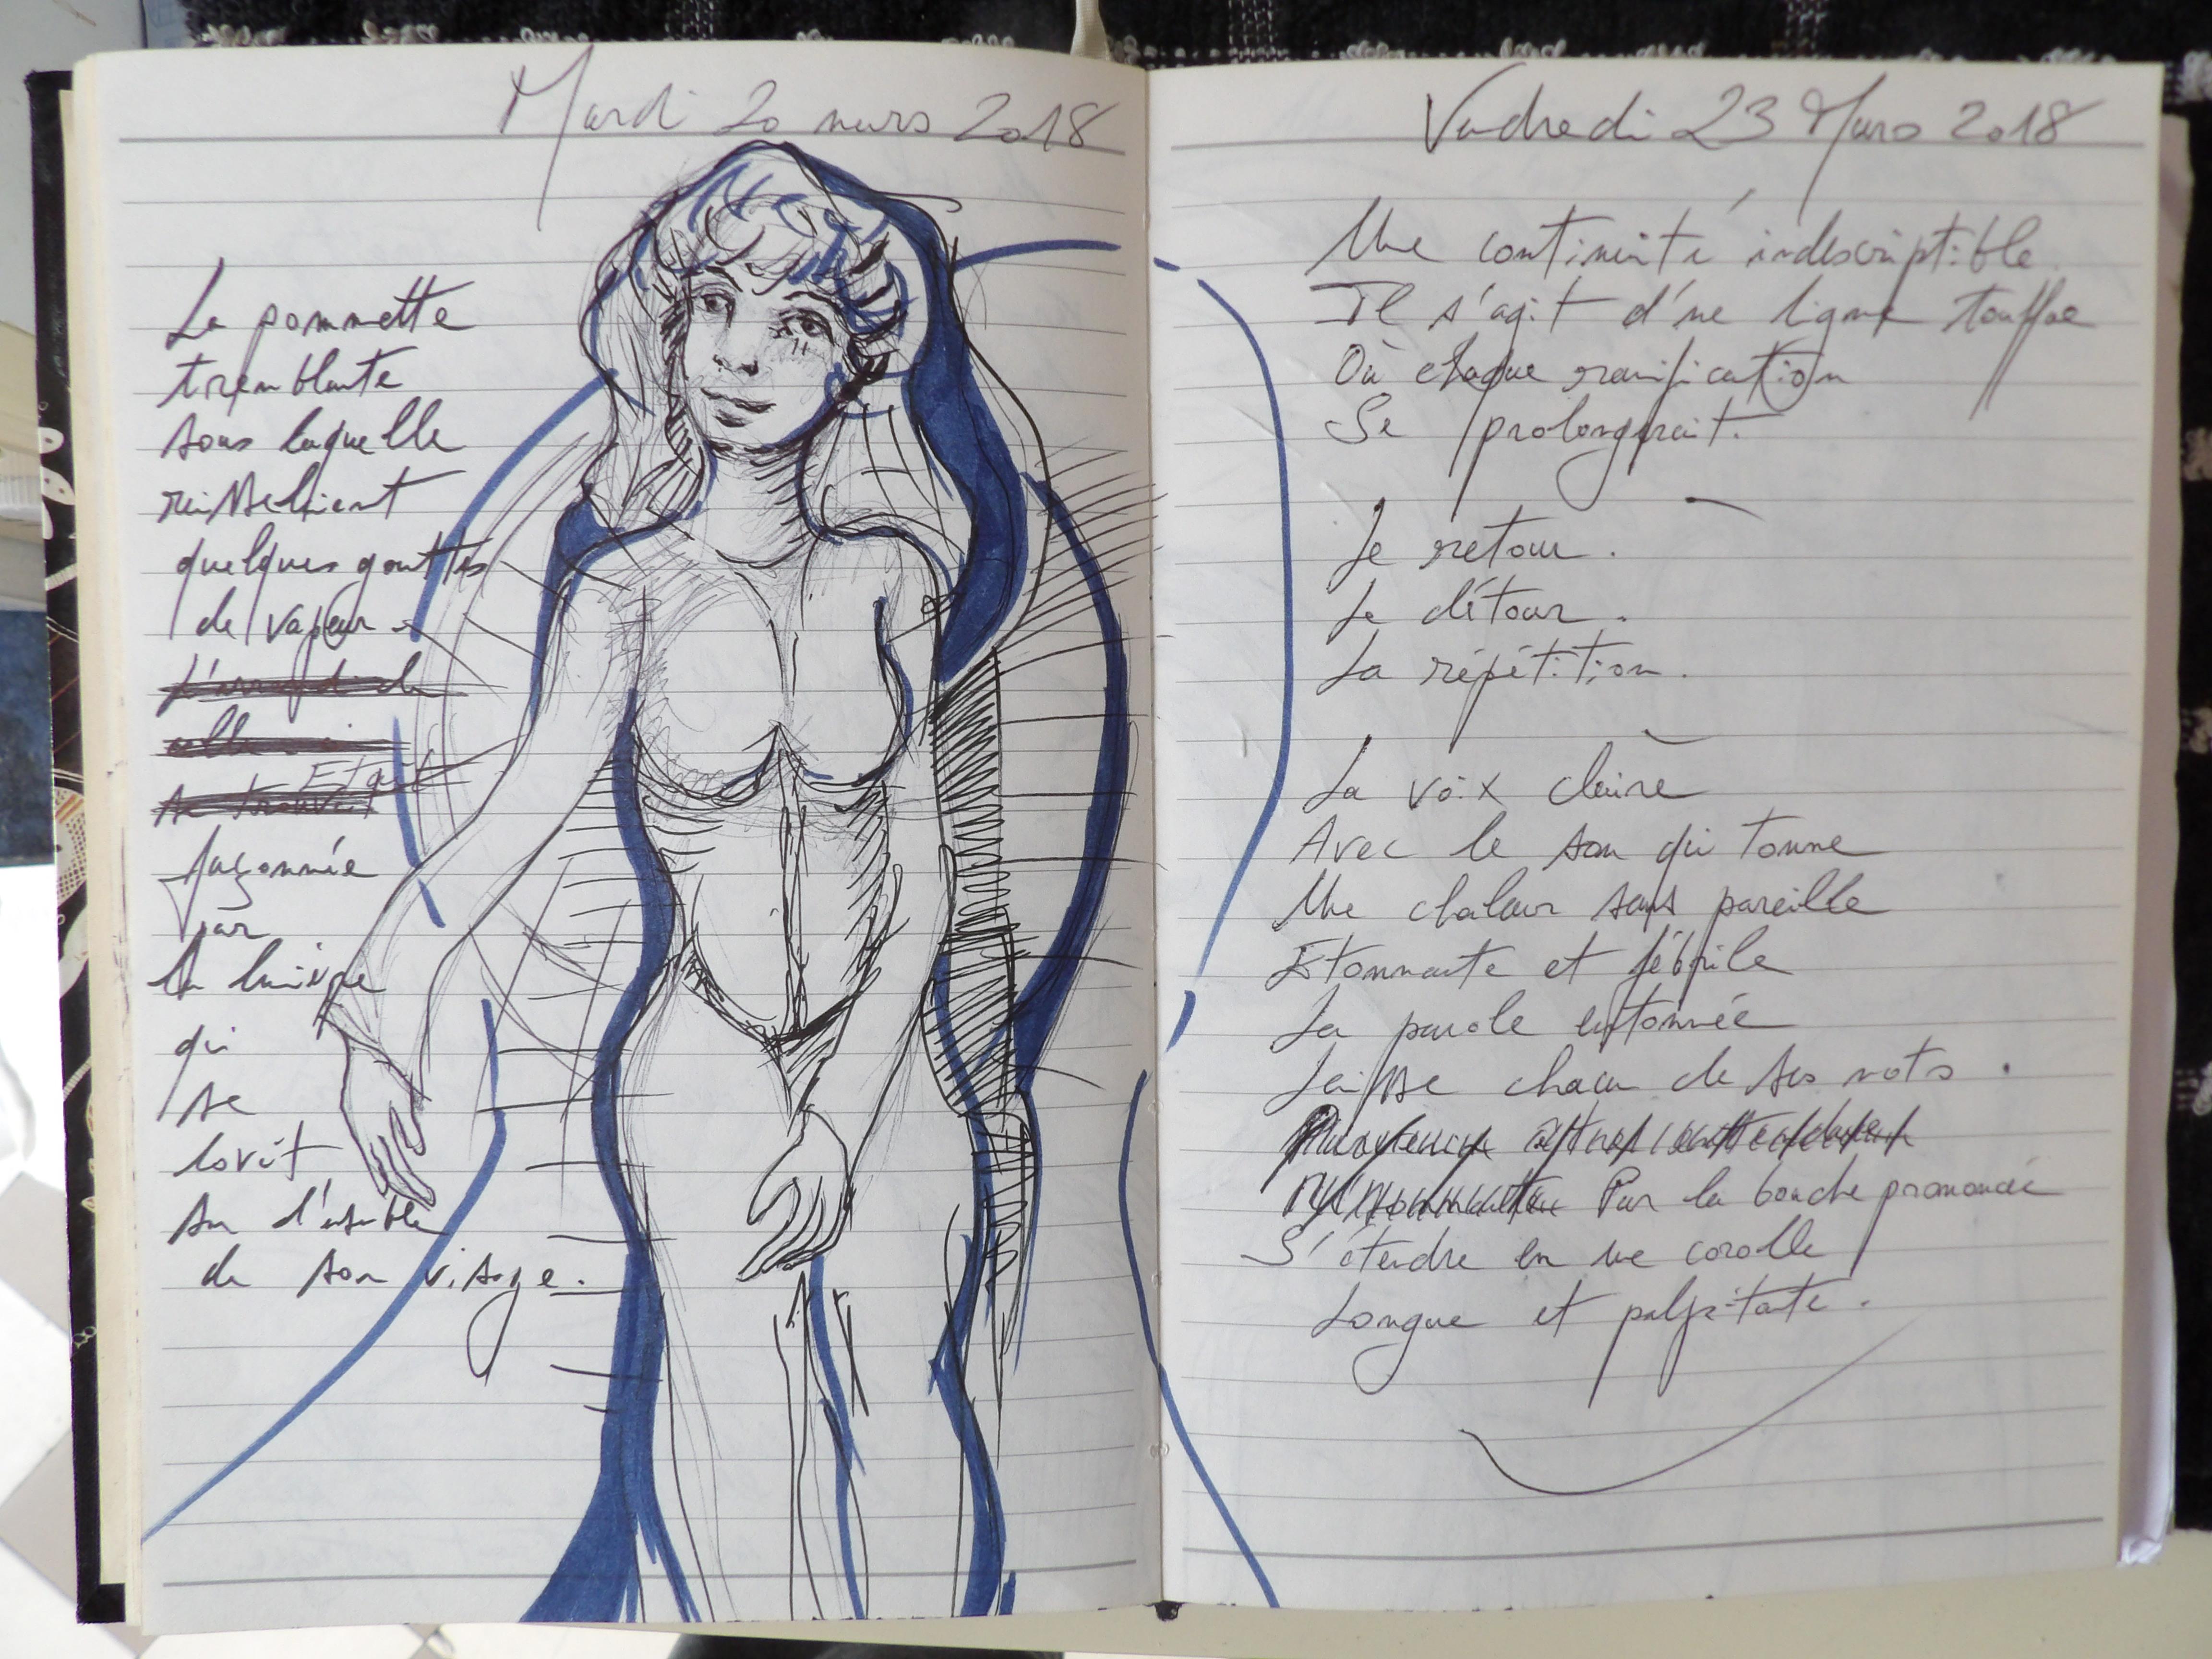 Mardi 20 mars 2018
La pommette
tremblante
sous laquelle
ruisselaient
quelques gouttes
de vapeur
L'arrondi de
celle-ci
Etait
se trouvait
façonnée
par
la lumière
qui
se
lovait
sur l'ensemble
de son visage.
Vendredi 23 Mars 2018
Une continuité indescriptible
Il s'agit d'une ligne touffue
Où chaque ramification
Se prolongerait.
Le retour.
Le détour.
La répétition.
La voix claire
Avec le son qui tonne
Une chaleur sans pareille
Etonnante et fébrile
La parole entonnée
Laisse chacun de ses mots.
Par la bouche prononcée
S'étendre en une corolle
Longue et palpitante.